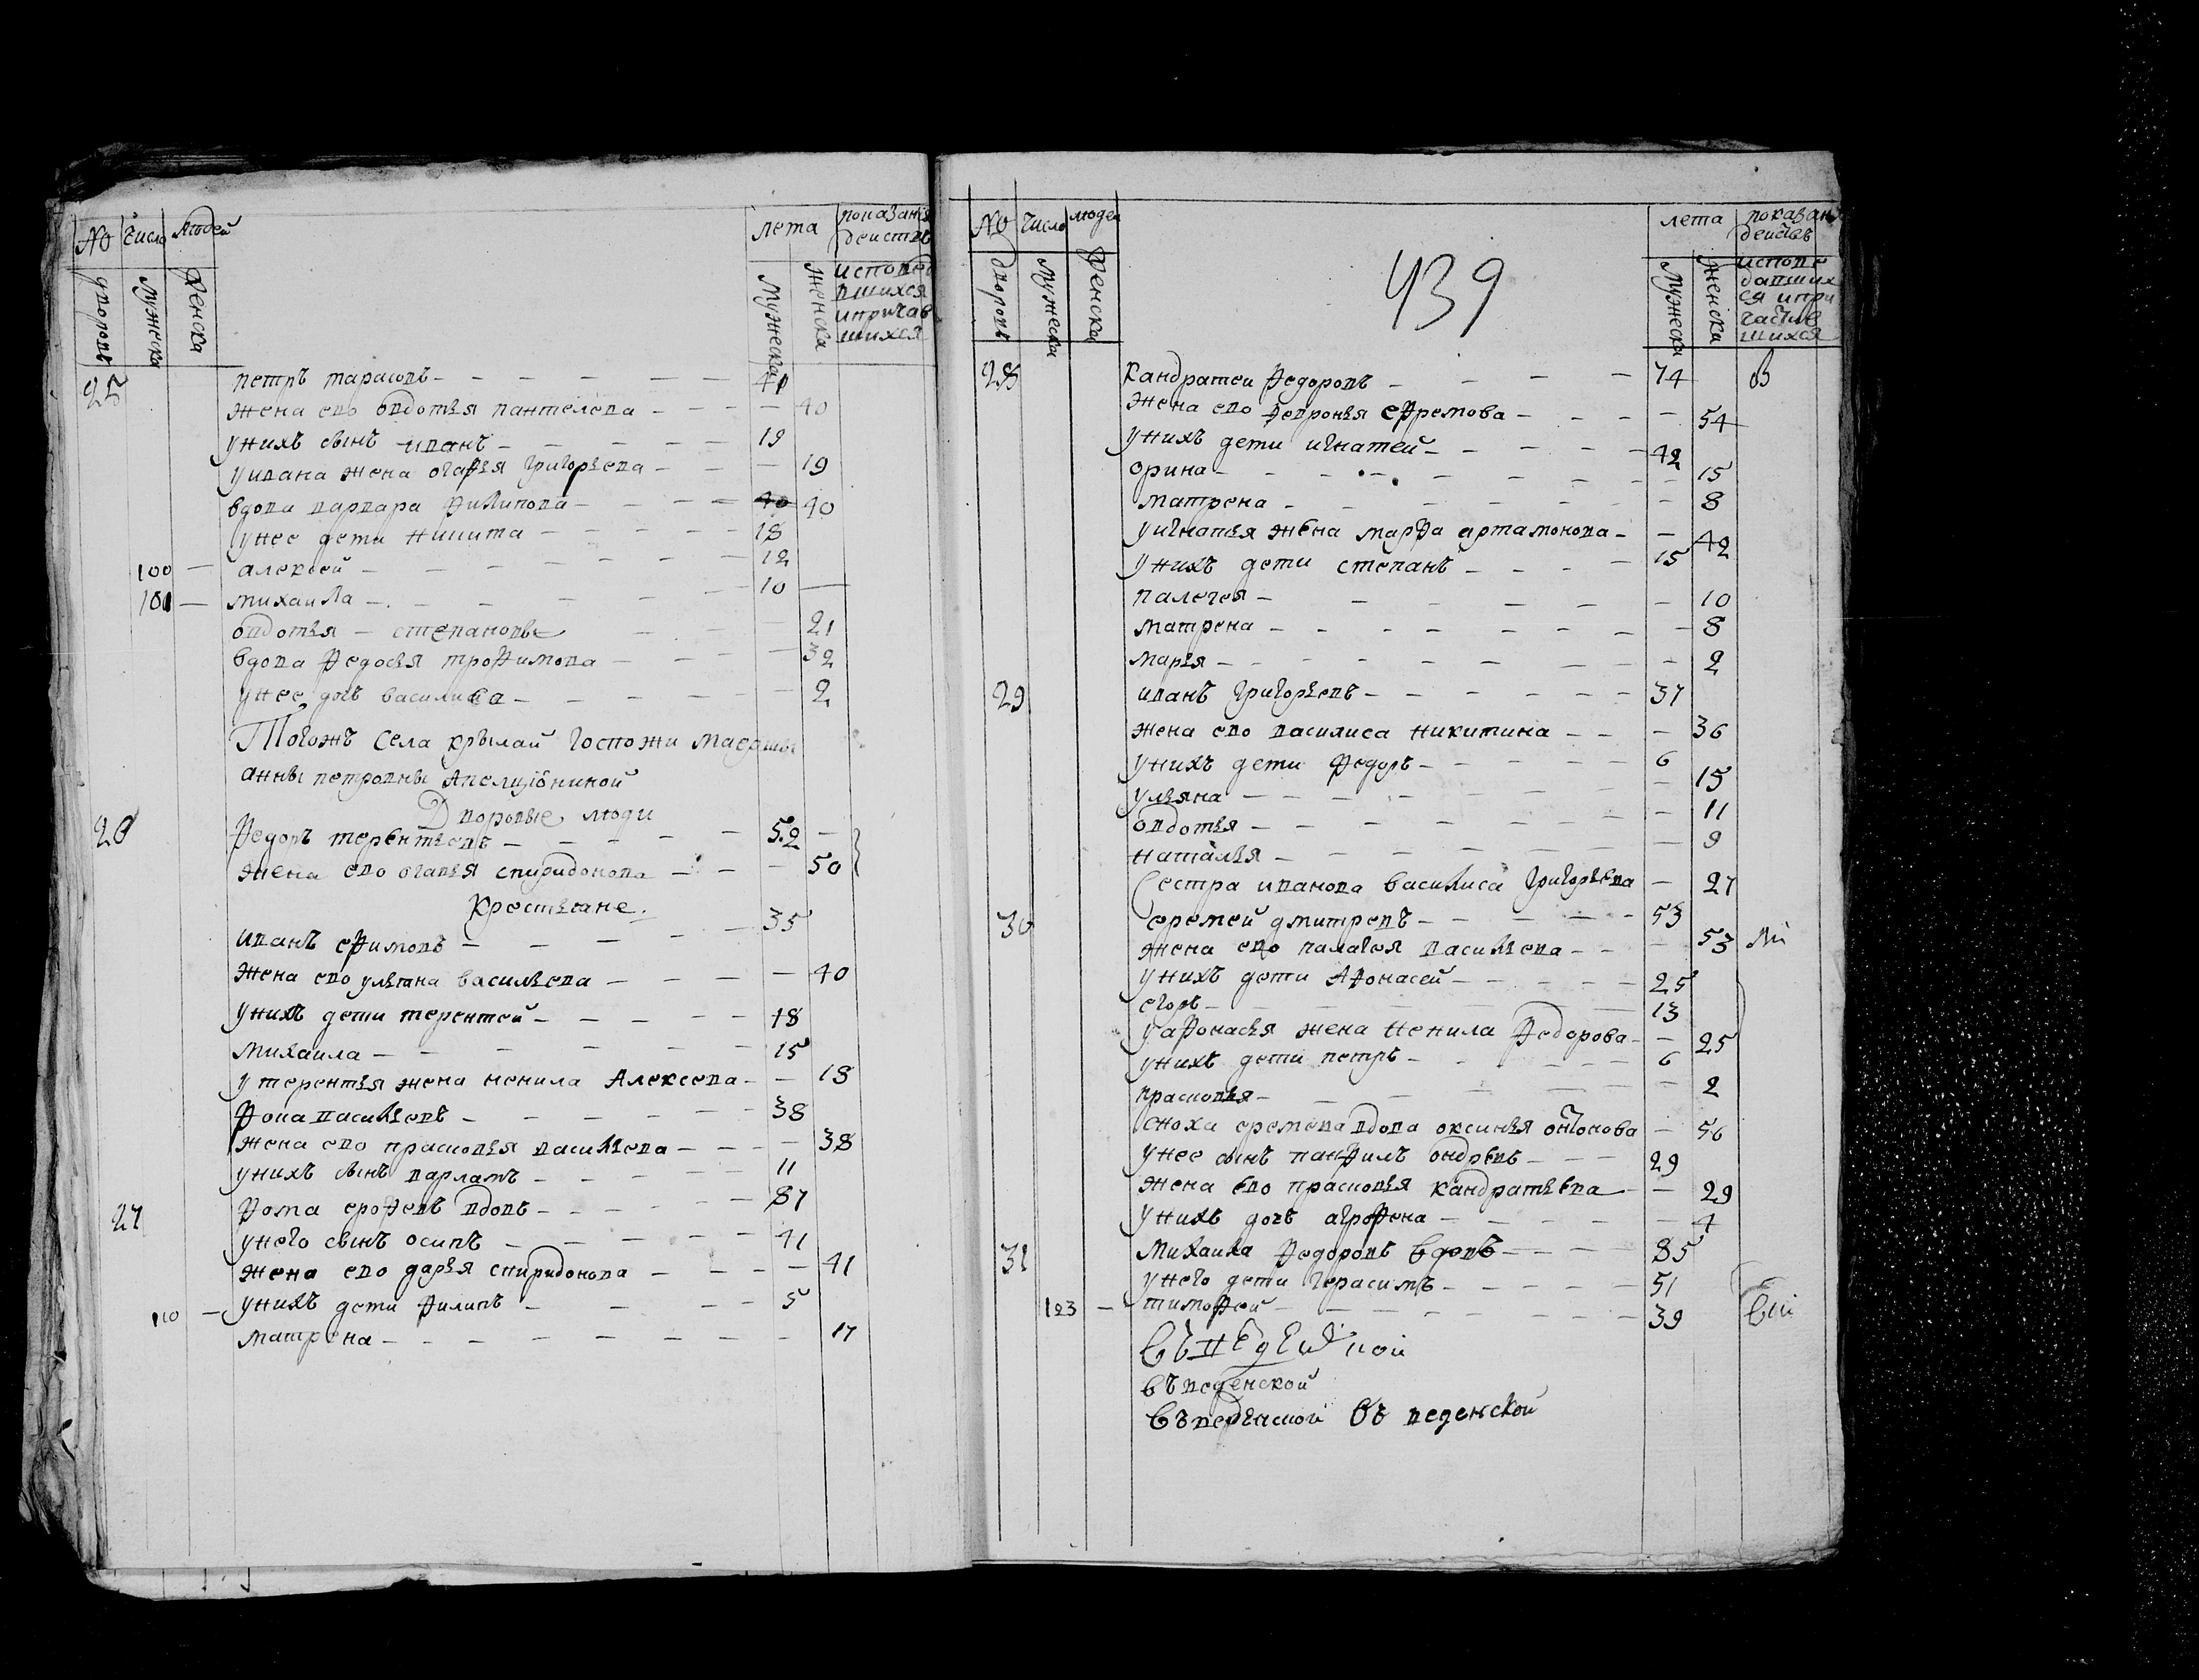 № число людей
лета показаня
деиств
дворовъ мужеска женска
мужеска женска
исповед
вшихся
ипричав
шихся
25 петръ тарасовъ 41
жена ево овдотья пантелева 40
унихъ сынъ иванъ 19
уивана жена огафья григорьева 19
вдова варвара филипова 40 40
унее дети никита 18
100 алексей 12
101 михаила 10
овдотья степановы 21
вдова федосья трофимова 32
унее дочь василиса 2
Тогожъ села крылай госпожи
анны петровны
Дворовые люди
26 федоръ терентьевъ 52
жена ево огафья спиридонова 50
крестьяне.
иванъ ефимовъ 35
жена ево ульяна васильева 40
унихъ дети терентей 18
михаила 15
утерентья жена ненила Алексева 18
фока васильевъ 38
жена ево прасковья васильева 38
унихъ сынъ варламъ 11
27 фома ерофевъ вдовъ 87
унего сынъ осипъ 41
жена ево дарья спиридонова 41
110 унихъ дети филипъ 5
матрена 17
№ число людей
лета показан
деиств
дворовъ мужеска женска
мужеска женска
исповe
давших
ся ипри
частив
шихся
439
28 кандратеи федоровъ 74 в
жена ево февронья ефремова 54
унихъ дети игнатей 42
орина 15
матрена 8
уигнатья жена марфа артамонова 42
унихъ дети степанъ 15
палегея 10
матрена 8
марья 2
29 иванъ григорьевъ 37
жена ево василиса никитина 36
унихъ дети федоръ 6
ульяна 15
овдотья 11
наталья 9
Сестра иванова василиса григорьева 27
30 еремей дмитревъ 53
жена ево палагея васильева 53
унихъ дети Афонасей 25
егоръ 13
уафонасья жена ненила федорова 25
унихъ дети петръ 6
прасковья 2
сноха еремева вдова оксинья онтонова 56
унее сынъ панфилъ ондревъ 29
жена ево прасковья кандратьева 29
унихъ дочь агрофена 4
31 михаила федоровъ вдовъ 85
унего дети герасимъ 51
123 тимофей 39
въведенской
въ веденской